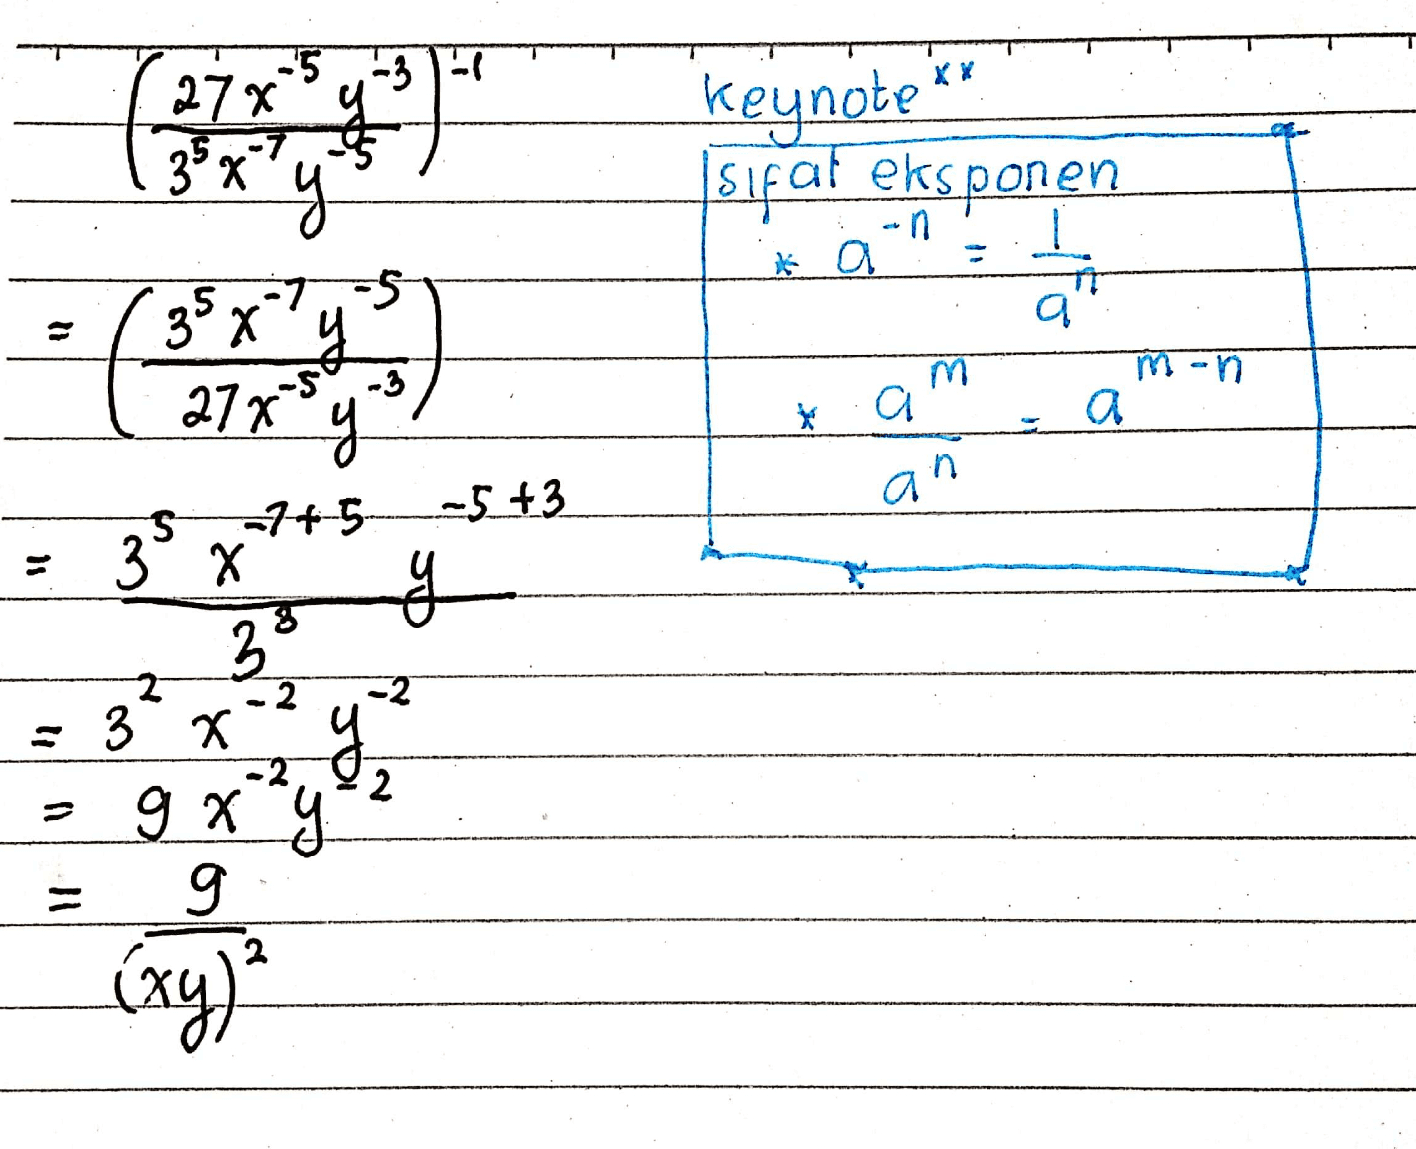 (27x⁻⁵ y⁻³ / 3⁵ x⁻⁷ y⁻⁵)⁻¹
= (3⁵ x⁻⁷ y⁻⁵ / 27x⁻⁵ y⁻³)
= 3⁵ x⁻⁷⁺⁵ y⁻⁵⁺³ / 3³
= 3² x⁻² y⁻²
= 9 x⁻² y⁻²
= 9 / (xy)²
keynote **
sifat eksponen
* a⁻ⁿ = 1 / aⁿ
* aᵐ / aⁿ = aᵐ⁻ⁿ